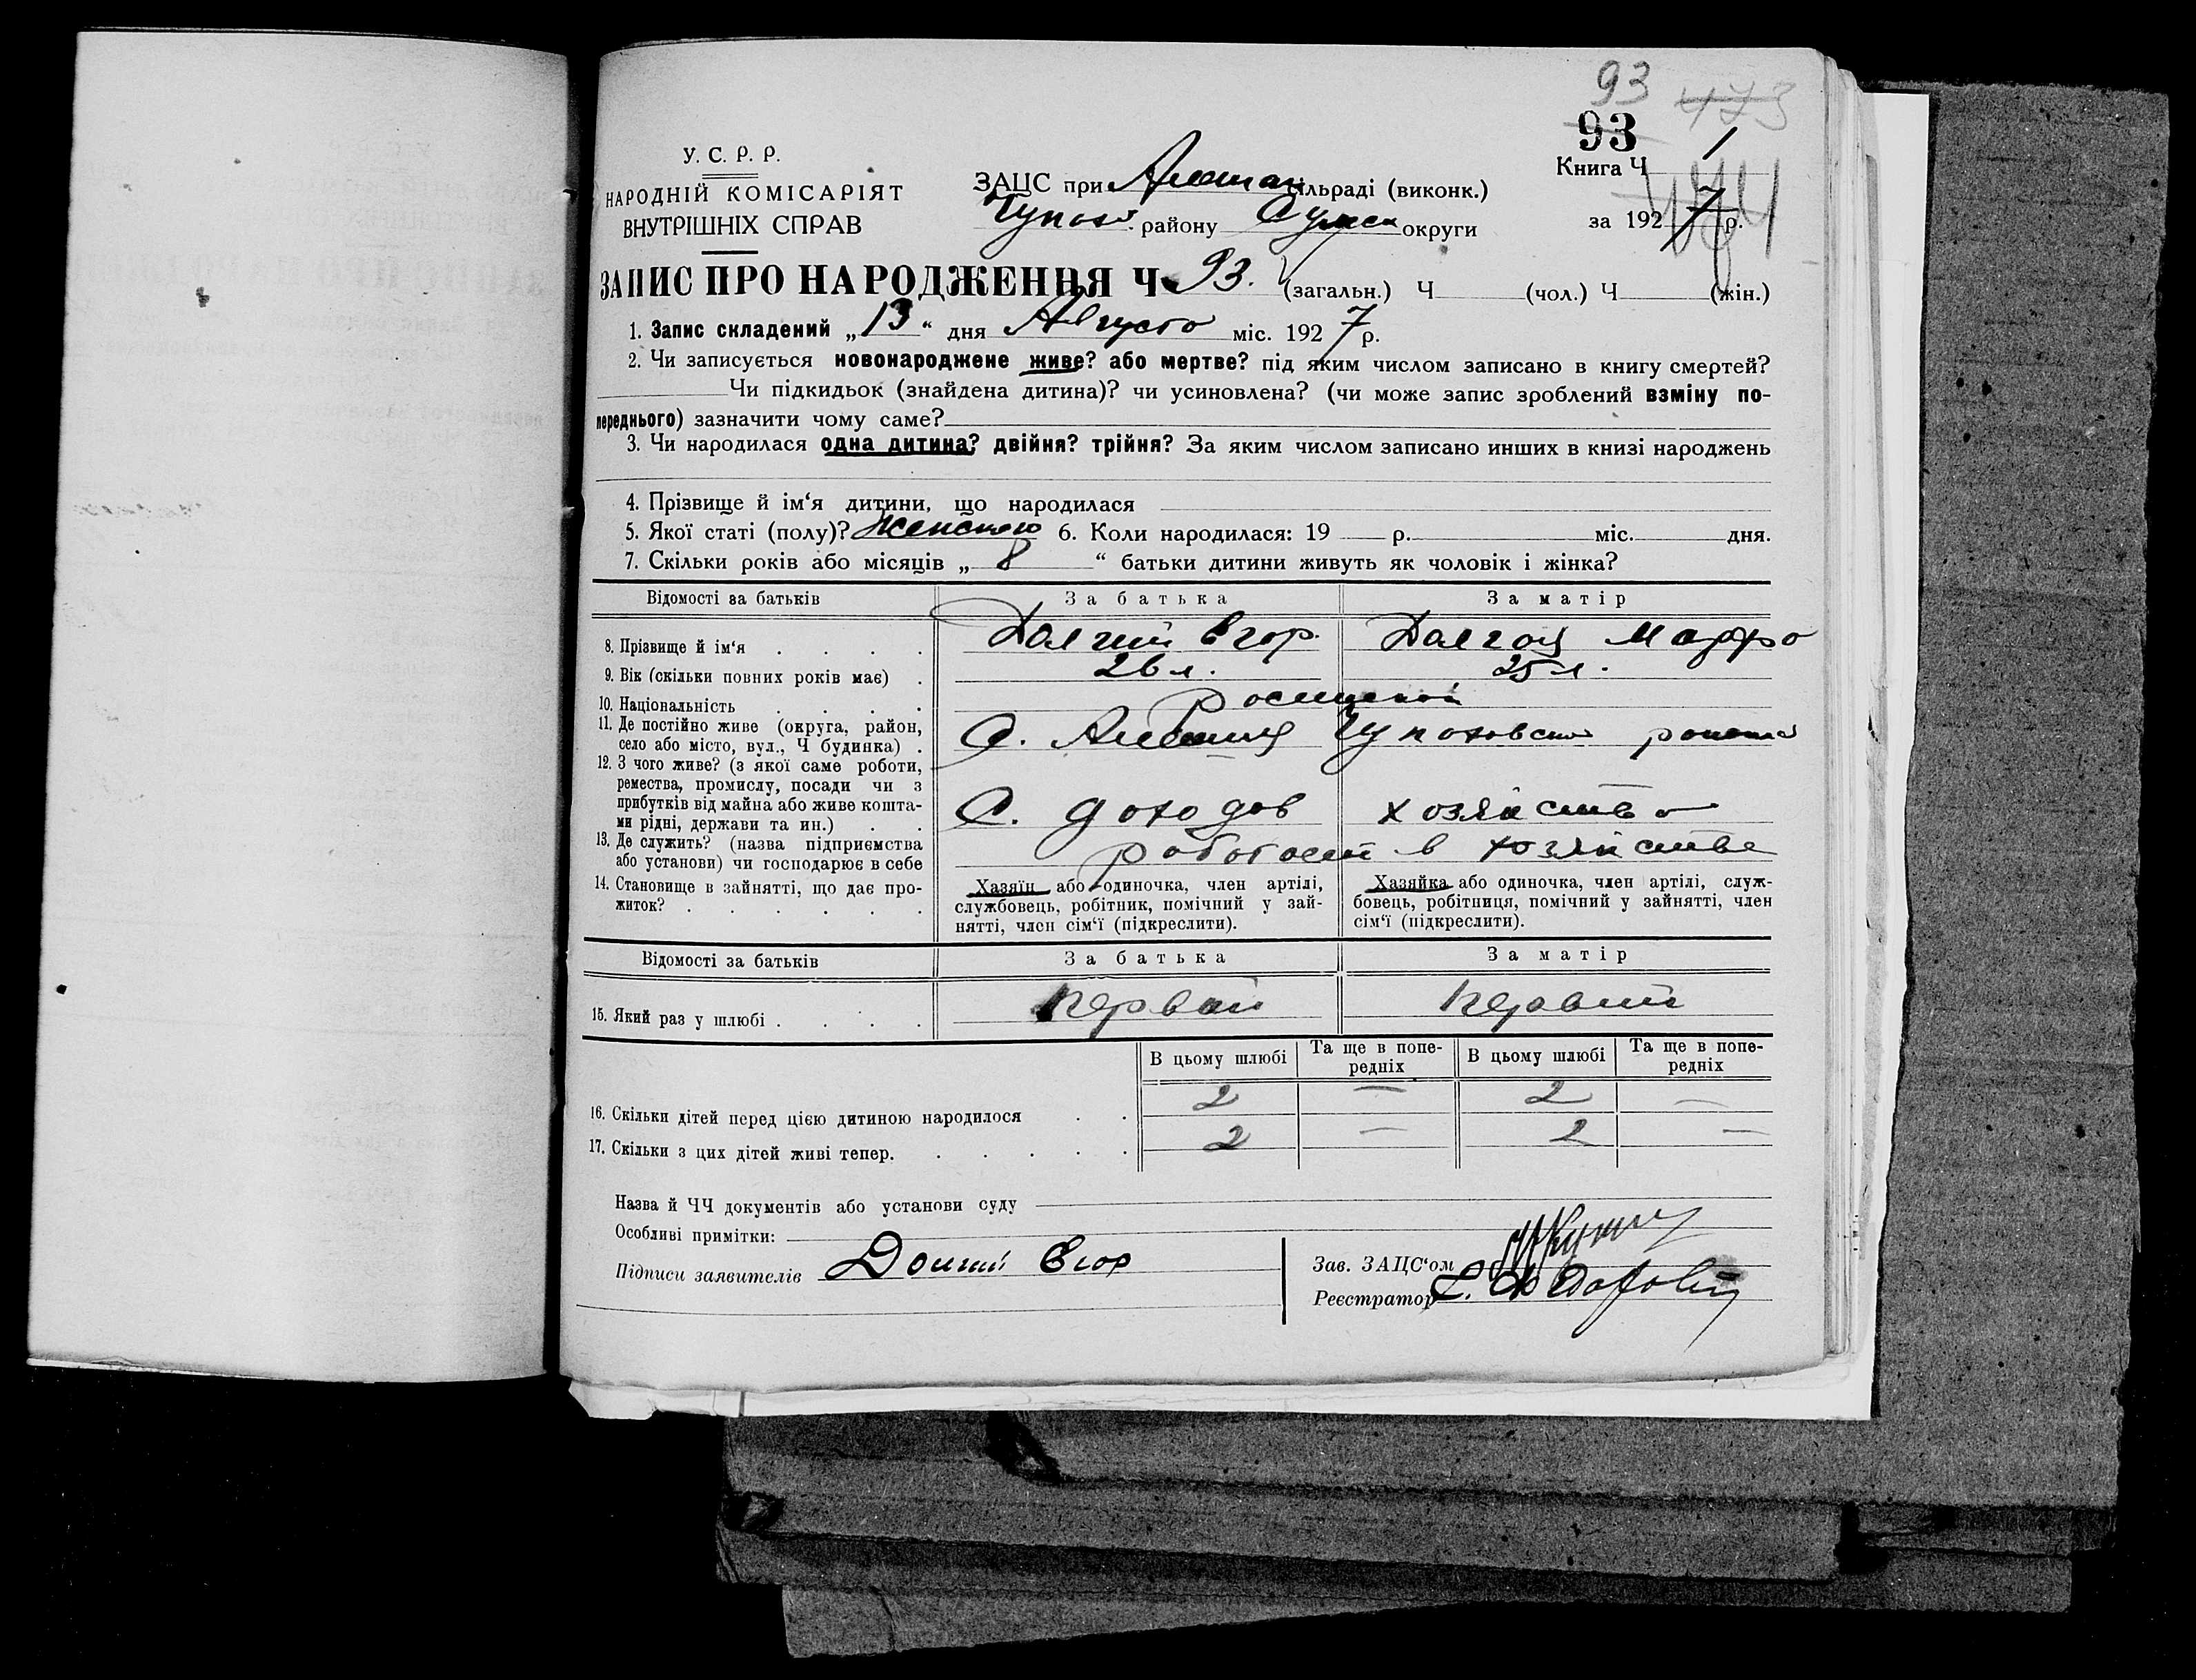 93 473
93
У. С. Р. Р.
НАРОДНІЙ КОМІСАРІЯТ
ВНУТРІШНІХ СПРАВ
Книга Ч 1
за 1927 р.
ЗАЦС при сільраді (виконк.)
району округи
ЗАПИС ПРО НАРОДЖЕННЯ Ч 93. (загальн.) Ч (чол.) Ч (жін.)
1. Запис складений „13“ дня Августа міс. 1927 р.
2. Чи записується новонароджене живе? або мертве? під яким числом записано в книгу смертей?
Чи підкидьок (знайдена дитина)? чи усиновлена? (чи може запис зроблений взміну по-
переднього) зазначити чому саме?
3. Чи народилася одна дитина? двійня? трійня? За яким числом записано инших в книзі народжень
4. Прізвище й ім‘я дитини, що народилася
5. Якої статі (полу)? Женского 6. Коли народилася: 19 р. міс. дня.
7. Скільки років або місяців „ 8 “ батьки дитини живуть як чоловік і жінка?
Відомості за батьків За батька За матір
8. Прізвище й ім‘я . . . . Долгий Егор. Долгая
9. Вік (скільки повних років має) . 26 л. 25 л.
10. Національність . . . .
11. Де постійно живе (округа, район,
село або місто, вул., Ч будинка) . С.
12. З чого живе? (з якої саме роботи,
ремества, промислу, посади чи з
прибутків від майна або живе кошта-
ми рідні, держави та ин.) . . С. доходов хозяйства
13. Де служить? (назва підприємства
або установи) чи господарює в себе работает в хозяйстве
14. Становище в зайнятті, що дає про-
житок? . . . . . .
Хазяїн або одиночка, член артілі,
службовець, робітник, помічний у зай-
нятті, член сім‘ї (підкреслити).
Хазяйка або одиночка, член артілі, служ-
бовець, робітниця, помічний у зайнятті, член
сім‘ї (підкреслити).
Відомості за батьків За батька За матір
15. Який раз у шлюбі . . . . Первый Первый
В цьому шлюбі Та ще в попе-
редніх В цьому шлюбі Та ще в попе-
редніх
16. Скільки дітей перед цією дитиною народилося . . 2 — 2 —
17. Скільки з цих дітей живі тепер. . . . . . 2 — 2 —
Назва й ЧЧ документів або установи суду
Особливі примітки:
Підписи заявителів Долгий Егор
Зав. ЗАЦС‘ом
Реєстратор